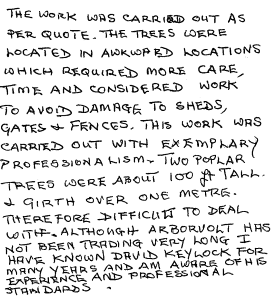 THE WORK WAS CARRIED OUT AS
PER QUOTE. THE TREES WERE
LOCATED IN AWKWARD LOCATIONS
WHICH REQUIRED MORE CARE,
TIME AND CONSIDERED WORK
TO AVOID DAMAGE TO SHEDS,
GATES & FENCES. THIS WORK WAS
CARRIED OUT WITH EXEMPLARY
PROFESSIONALISM. TWO POPLAR
TREES WERE ABOUT 100 ft TALL.
& GIRTH OVER ONE METRE.
THEREFORE DIFFICULT TO DEAL
WITH. ALTHOUGH ARBORVOLT HAS
NOT BEEN TRADING VERY LONG I
HAVE KNOWN DAVID KEYLOCK FOR
MANY YEARS AND AM AWARE OF HIS
EXPERIENCE AND PROFESSIONAL
STANDARDS.